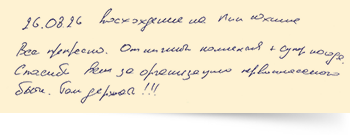 26.08.26 Восхождение на пик Юхина
Все прекрасно. Отличная компания + супер погода.
Спасибо Вам за организацию первоклассного
были. Так держать!!!